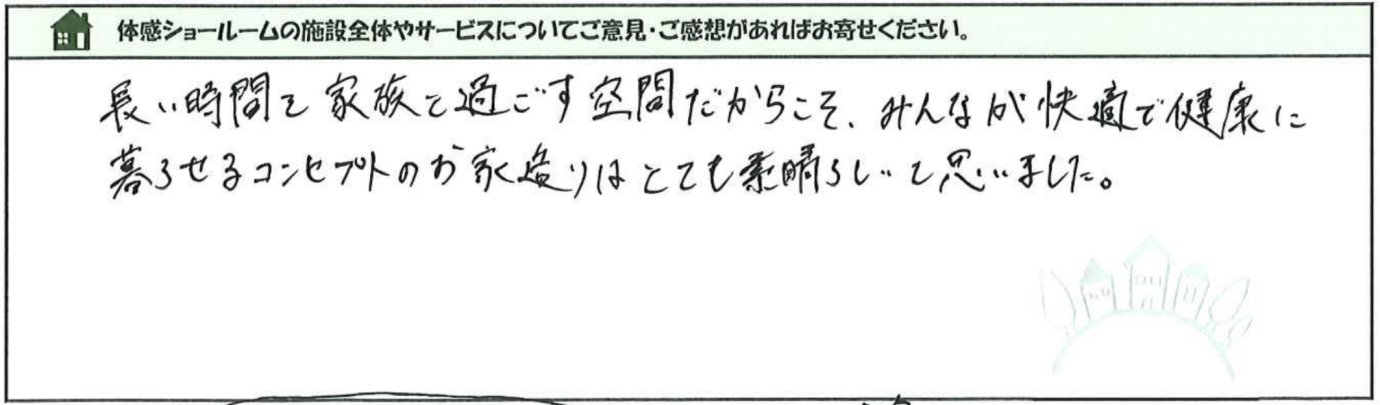 体感ショールームの施設全体やサービスについてご意見・ご感想があればお寄せください。
長い時間を家族と過ごす空間だからこそ、みんなが快適で健康に
暮らせるコンセプトのお家造りはとても素晴らしいと思いました。